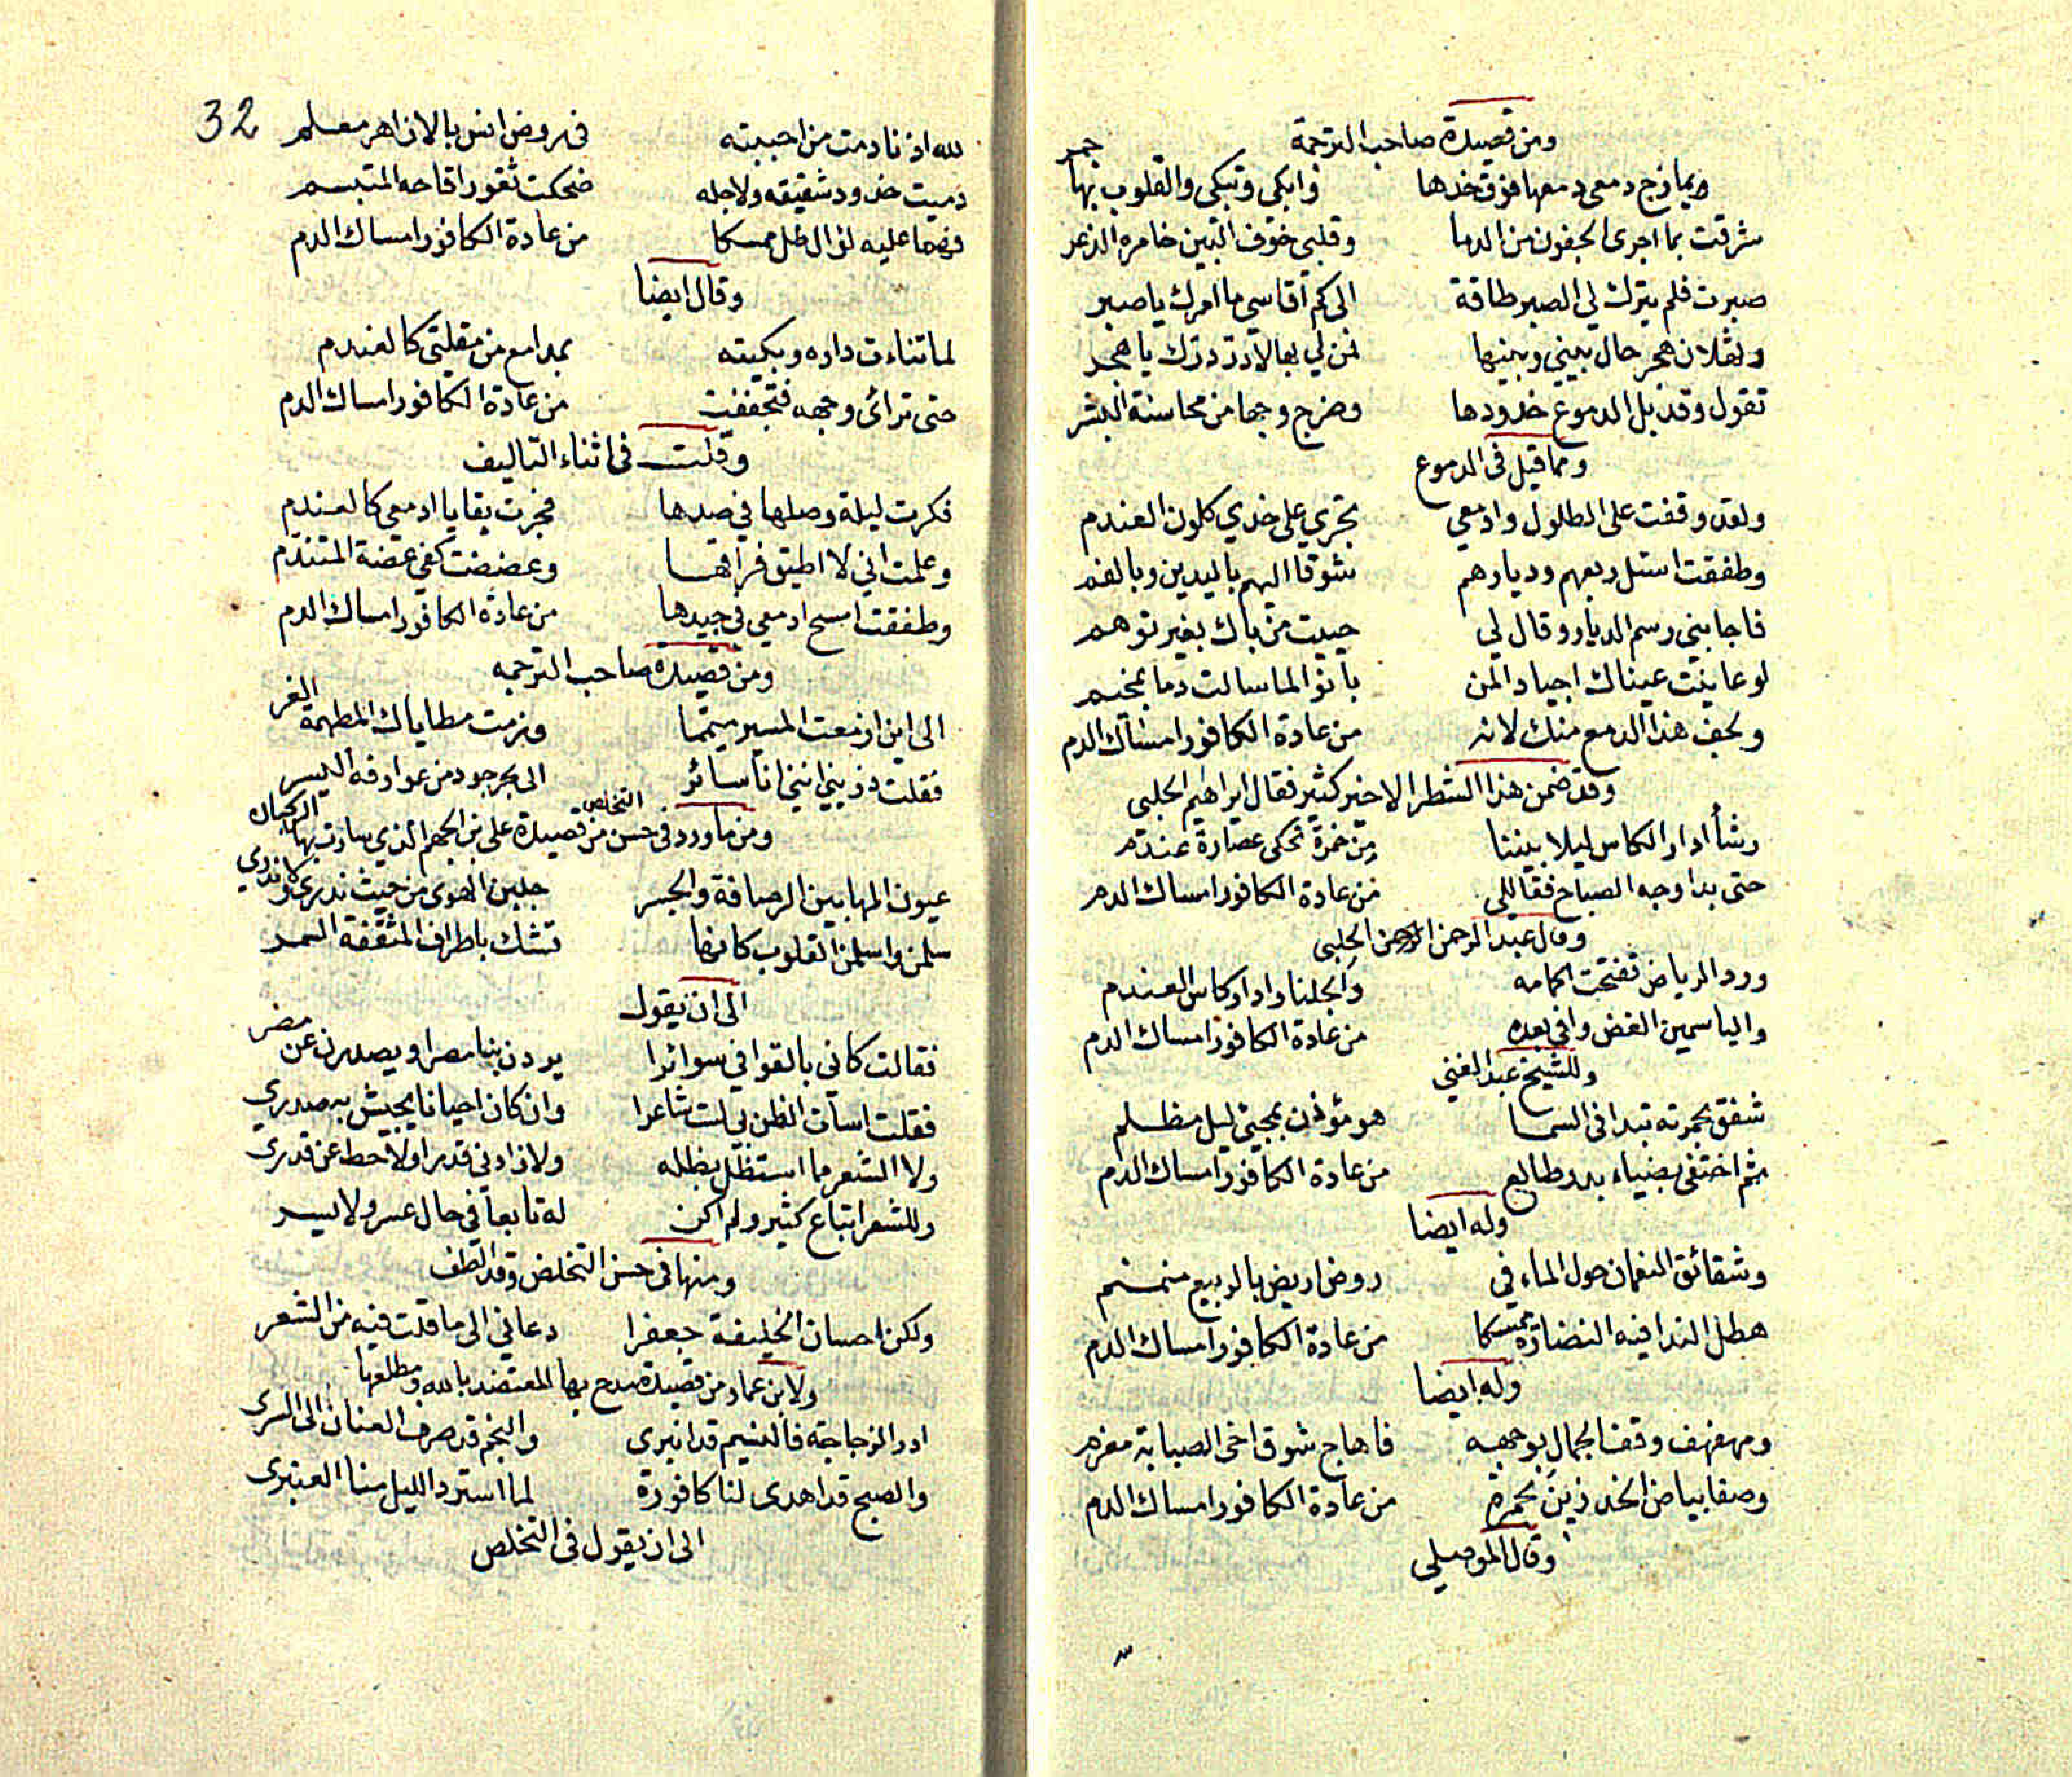 ومن قصيدة صاحب الترجمة
ويمازج دمعي دمعها فوق خدها فابكي وتبكي والقلوب بها جمر
شرقت بما اجرى الجفون من الدما وقلبي خوف البين خامره الذعر
صبرت فلم يترك لي الصبر طاقة الى كم اقاسي ما امرك يا صبر
هجر حال بيني وبينها فمن لي بها لا در درك يا هجر
تقول وقد بل الدموع خدودها وضرج وجها من محاسنة البشر
ومما قيل في الدموع
ولقد وقفت على الطلول وادمعي تجري على خدي كلون العندم
وطفقت اسئل ربعهم وديارهم شوقا اليهم باليدين وبالفم
فاجابني رسم الديار وقال لي حييت من باك بغير توهم
لو عاينت عيناك اجياد المن بانوا لما سالت دما بمخيم
ويجف هذا الدمع منك لانه من عادة الكافور امساك الدم
وقد ضمن هذا الشطر الاخير كثير فقال ابراهيم الحلبي
رشأ ادار الكاس ليلا بيننا من خمرة تحكي عصارة عندم
حتى بدا وجه الصباح فقال لي من عادة الكافور امساك الدم
وقال عبد الرحمن الحلبي
ورد الرياض تفتحت اكمامه والجلنار ادار كاس العندم
والياسمين الغض وافى بعده من عادة الكافور امساك الدم
وللشيخ عبد الغني
شفق بحمرته تبدا في السما هو مؤذن بمجيئ ليل مظلم
ثم اختفى بضياء بدر طالع من عادة الكافور امساك الدم
وله ايضا
وشقائق النعمان حول الماء في روض اريض بالربيع منمنم
هطل الندا فيه النضارة ممسكا من عادة الكافور امساك الدم
وله ايضا
ومهفهف وقف الجمال بوجهه فاهاج شوق اخي الصبابة مغرم
وصفا بياض الخد زين بحمرة من عادة الكافور امساك الدم
وقال الموصلي
32
لله اذ نادمت من احببته في روض انس بالازاهر معلم
دميت خدود شقيقه ولاجله ضحكت ثغور اقاحه المتبسم
فهما عليه لؤال طل ممسكا من عادة الكافور امساك الدم
وقال ايضا
لما تناءت داره وبكيته بمدامع من مقلتي كالعندم
حتى ترائ وجهه فتجففت من عادة الكافور امساك الدم
وقلت في اثناء التاليف
فكرت ليلة وصلها في صدها فجرت بقايا ادمعي كالعندم
وعلمت اني لا اطيق فراقها وعضضت كفي عضة المتندم
وطفقت امسح ادمعي في جيدها من عادة الكافور امساك الدم
ومن قصيدة صاحب الترجمه
الى اين ازمعت المسير ميمما وزمت مطاياك المطهمة الغر
فقلت ذريني انني انا سائر الى بحر جود من عوارفه اليسر
ومن ما ورد في حسن التخلص من قصيدة علي بن الجهم الذي سارت بها الركبان
عيون المها بين الرصافة والجسر جلبن الهوى من حيث ندري ولا ندري
سلمن واسلمن القلوب كانما تشك باطراف المثقفة السمر
الى ان يقول
فقالت كاني بالقوافي سوائرا يردن بنا مصرا ويصدرن عن مضر
فقلت اسأت الظن بي لست شاعرا وان كان احيانا يجيش به صدري
ولا الشعر مما استظل بظله ولا زادني قدرا ولا حط عن قدري
وللشعر اتباع كثير ولم اكن له تابعا في حال عسر ولا يسر
ومنها في حسن التخلص وقد الطف
ولكن احسان الخليفة جعفرا دعاني الى ما قلت فيه من الشعر
ولابن عمار من قصيدة مدح بها المعتضد بالله ومطلعها
ادر الزجاجة فالنسيم قد انبرى والنجم قد صرف العنان الى السرى
والصبح قد اهدى لنا كافورة لما استرد الليل منا العنبرى
الى ان يقول في التخلص